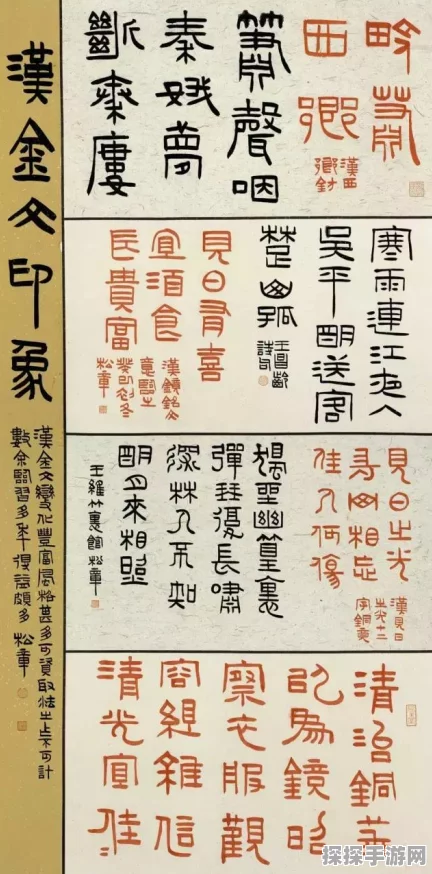 漢金文印象
漢金文變化豐富風格甚多可資取法之處不可計
數余臨習多年得益頗多 松章
西卿
漢西
卿鈁
簫聲咽
秦娥夢
斷秦廔
寒雨連江夜入
吳平明送客
楚山孤
王昌齡
詩句
見日有喜
宜酒食
長貴富
漢鏡銘文
意臨之
癸卯冬
松章
見日之光
長毋相忘
佳人何傷
漢見日
之光十二
字銅竟
獨坐幽篁裏
彈琴復長嘯
深林人不知
明月來相照
王維竹裏館 松章
清治銅華
以爲鏡昭
察衣服觀
容組雜信
清光宜佳
探探手游网